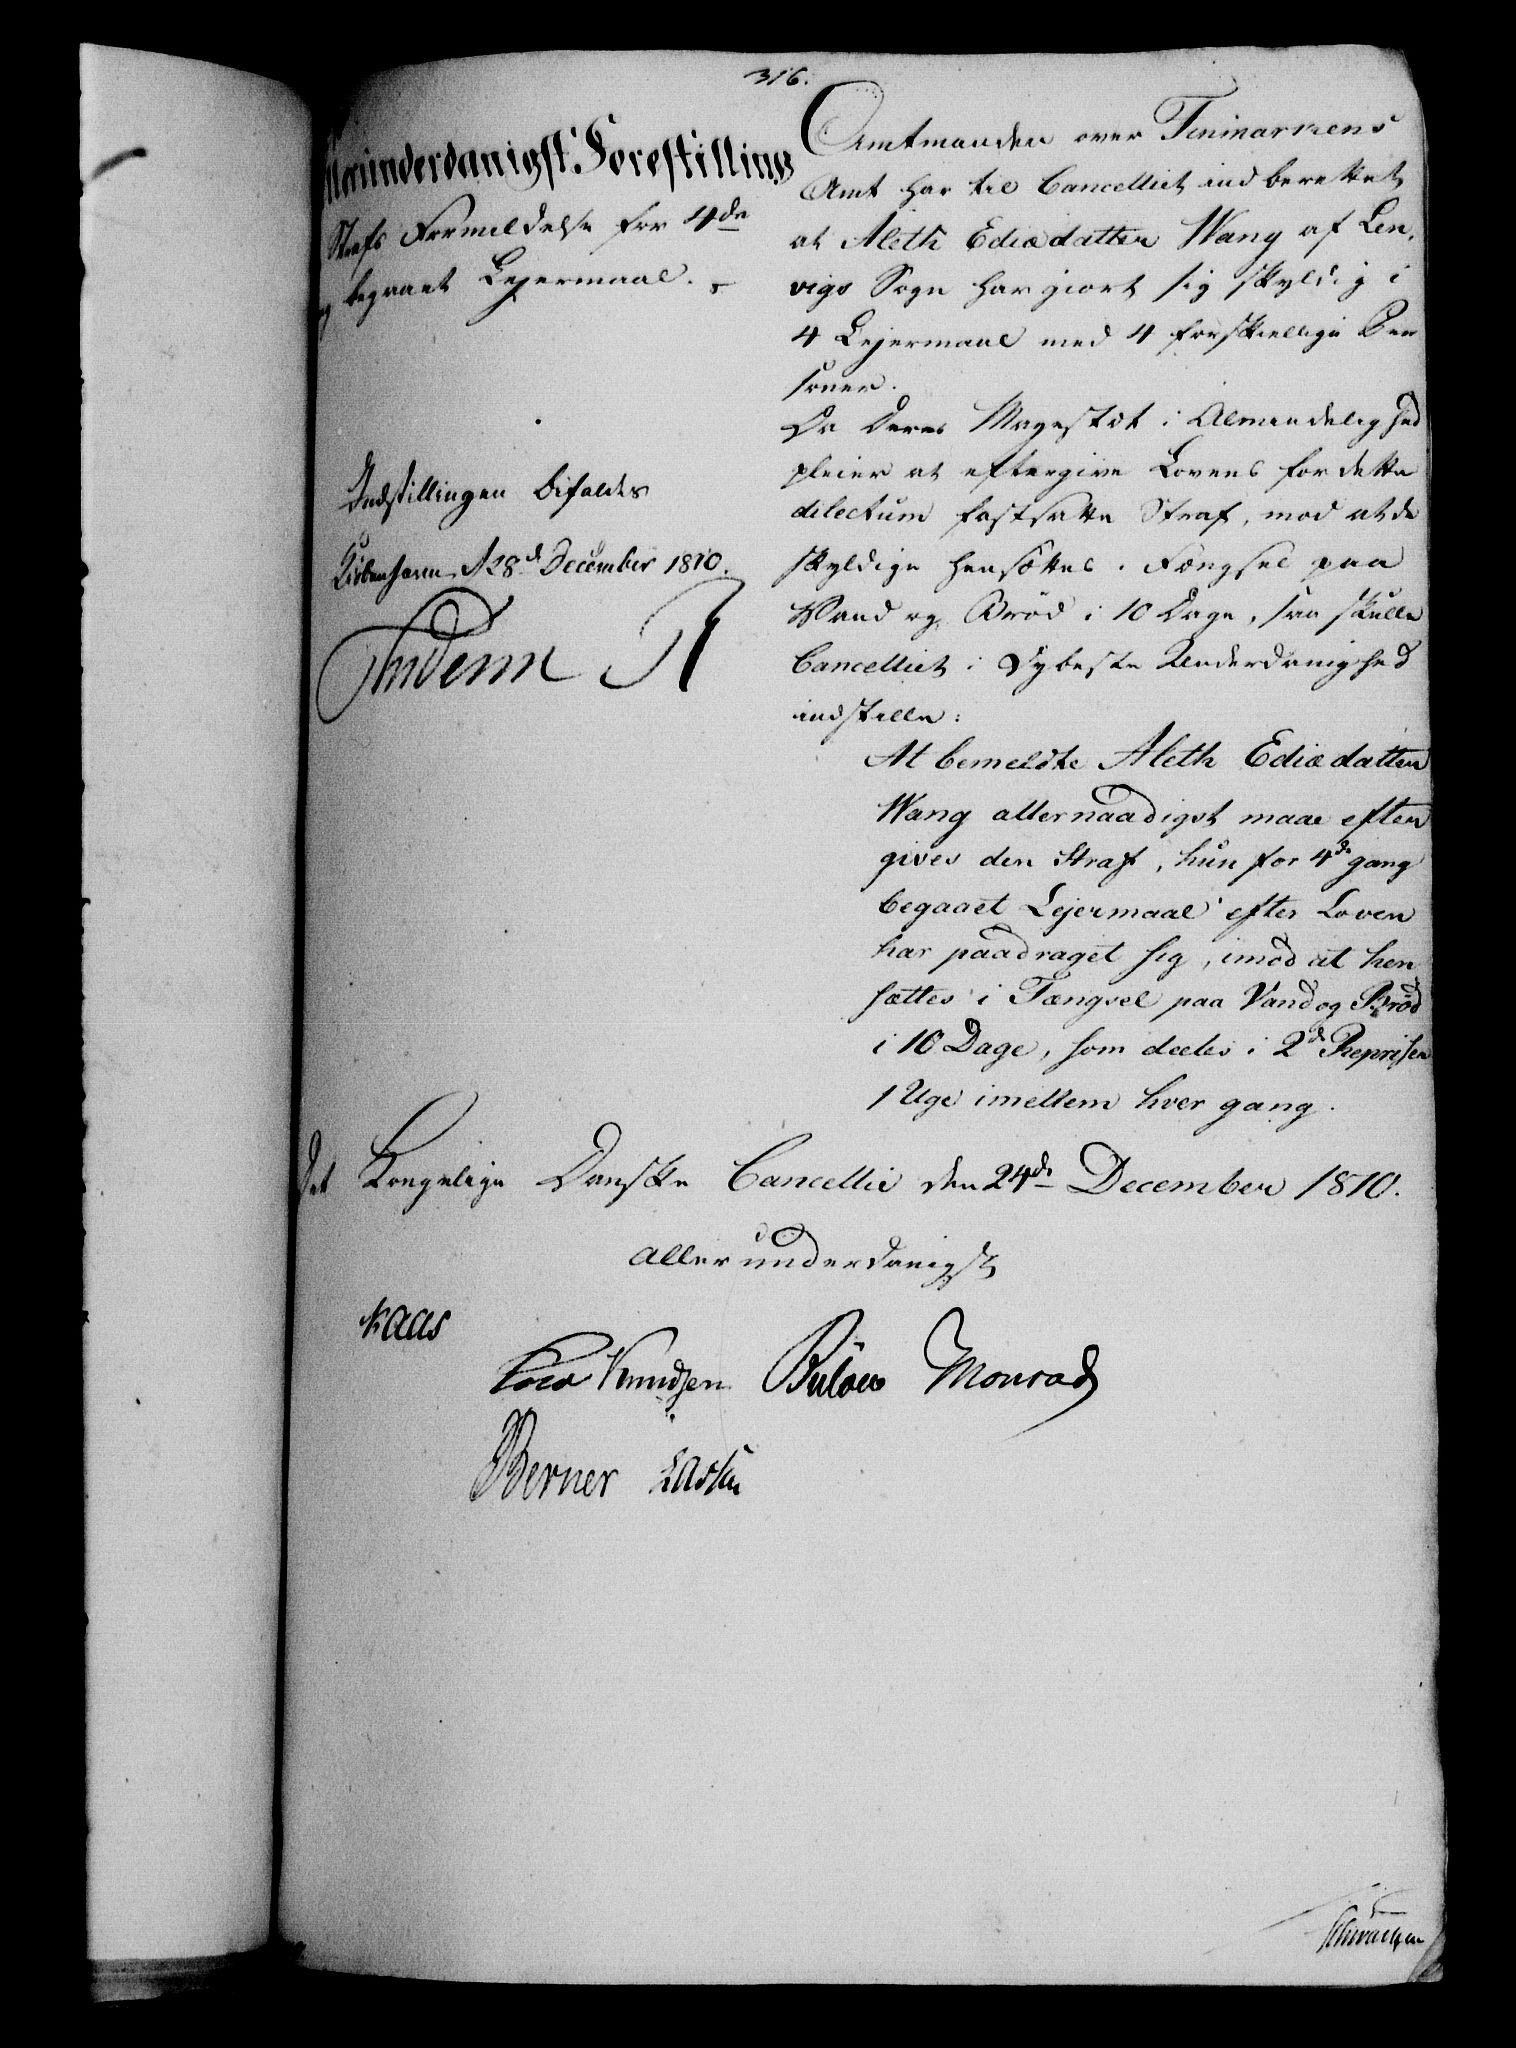 316.
Allerunderdanigst Forestilling
Strafs Formildelse for 4de
g begaaet Lejermaal.
Indstillingen bifaldes
Kiöbenhavn d 28d December 1810.
Frideric R
Amtmanden over Finmarkens
Amt har til Cancelliet indberettet
at Aleth Ediædatter Wang af Len,
vigs Sogn har giort sig skyldig i
4 Lejermaal med 4 forskiellige Per
soner.
Da Deres Majestæt i Almindelighed
pleier at eftergive Lovens for dette
delictum fastsatte Straf, mod at de
skyldige hensættes i Fængsel paa
Vand og Brød i 10 Dage, saa skulle
Cancelliet i dybeste Underdanighed
indstille:
At bemeldte Aleth Ediædatter
Wang allernaadigst maae efter
gives den Straf, hun for 4de gang
begaaet Lejermaal efter Loven
har paadraget sig, imod at hen
sættes i Fængsel paa Vand og Brød
i 10 Dage, som deeles i 2de Repriser
1 Uge imellem hver gang.
Det Kongelige Danske Cancellie den 24de December 1810.
allerunderdanigst
Kaas
Knudsen Bülow Monrad
Berner Lassen